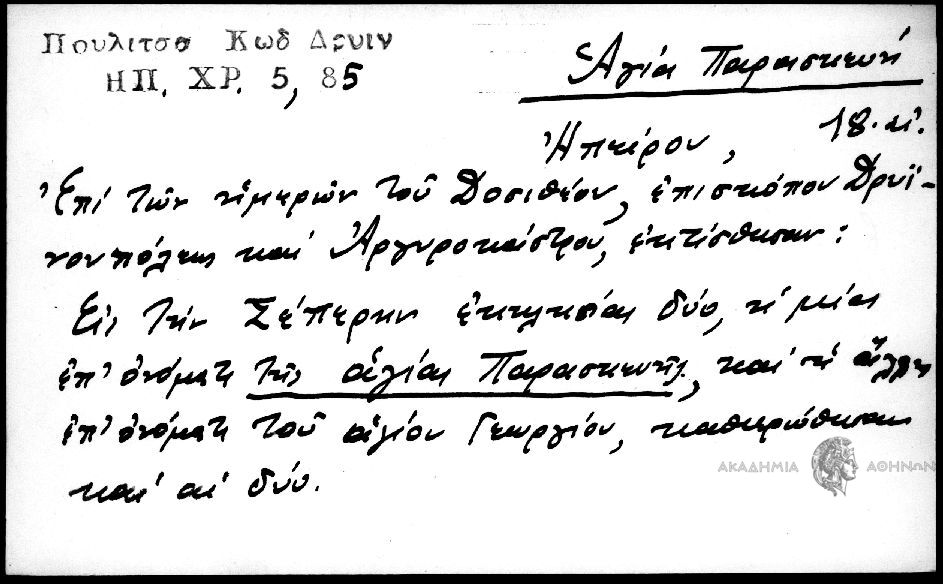 Πουλιτσα Κωδ Δρυιν
ΗΠ. ΧΡ. 5, 85
Ἁγία Παρασκευή
Ἠπείρου, 18. αἰ.
Ἐπί τῶν ἡμερῶν τοῦ Δοσιθέου, ἐπισκόπου Δρυϊ-
νουπόλεως καί Ἀργυροκάστρου, ἐκτίσθησαν:
Εἰς τήν Σέπερην ἐκκλησίαι δύο, ἡ μία
ἐπ' ὀνόματι τῆς ἁγίας Παρασκευῆς, καί ἡ ἄλλη
ἐπ' ὀνόματι τοῦ ἁγίου Γεωργίου, καθιερώθησαν
καί αἱ δύο.
ΑΚΑΔΗΜΙΑ ΑΘΗΝΩΝ